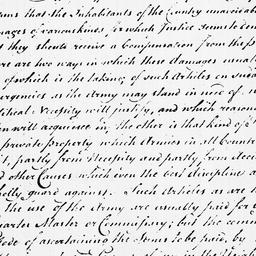 ems that the Inhabitants of the Country unavoidab
mages of various kinds, for which Justice seems to dem
they should receive a Compensation from the p
ere are two ways in which these damages usually
of which is the taking of such Articles on sudde
urgencies as the Army may stand in need of. w
litical Necessity will justify, and which reasona
en will acquiesce in, the other is that kind of
private property which Armies in all Countri
t, partly from Necessity and partly from Acci
d other Causes which even the best discipline a
holly guard against. Such Articles as are t
the use of the Army are usually paid for b
uarter Master or Commissary; but the comm
Mode of ascertaining the Sums to be paid, by